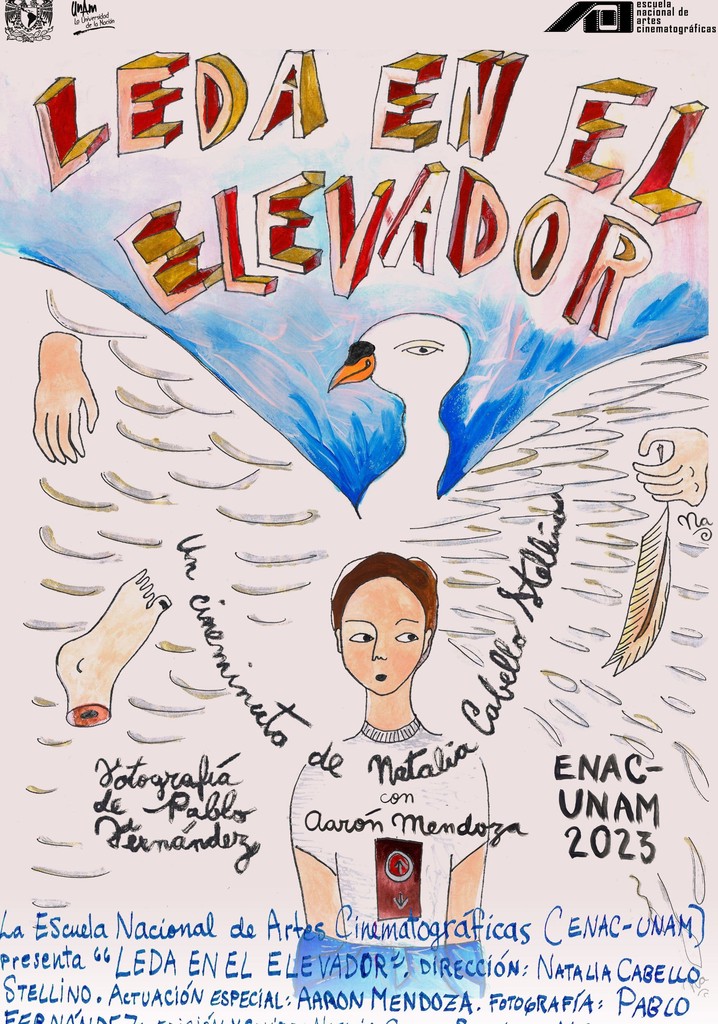 UNAM
La Universidad
de la Nación
escuela
nacional de
artes
cinematográficas
LEDA EN EL
ELEVADOR
Un cineminuto de Natalia Cabello Stellino
con
Aarón Mendoza
Fotografía
de Pablo
Fernández
ENAC-
UNAM
2023
La Escuela Nacional de Artes Cinematográficas (ENAC-UNAM)
presenta "LEDA EN EL ELEVADOR". DIRECCIÓN: NATALIA CABELLO
STELLINO. ACTUACIÓN ESPECIAL: AARON MENDOZA. FOTOGRAFÍA: PABLO